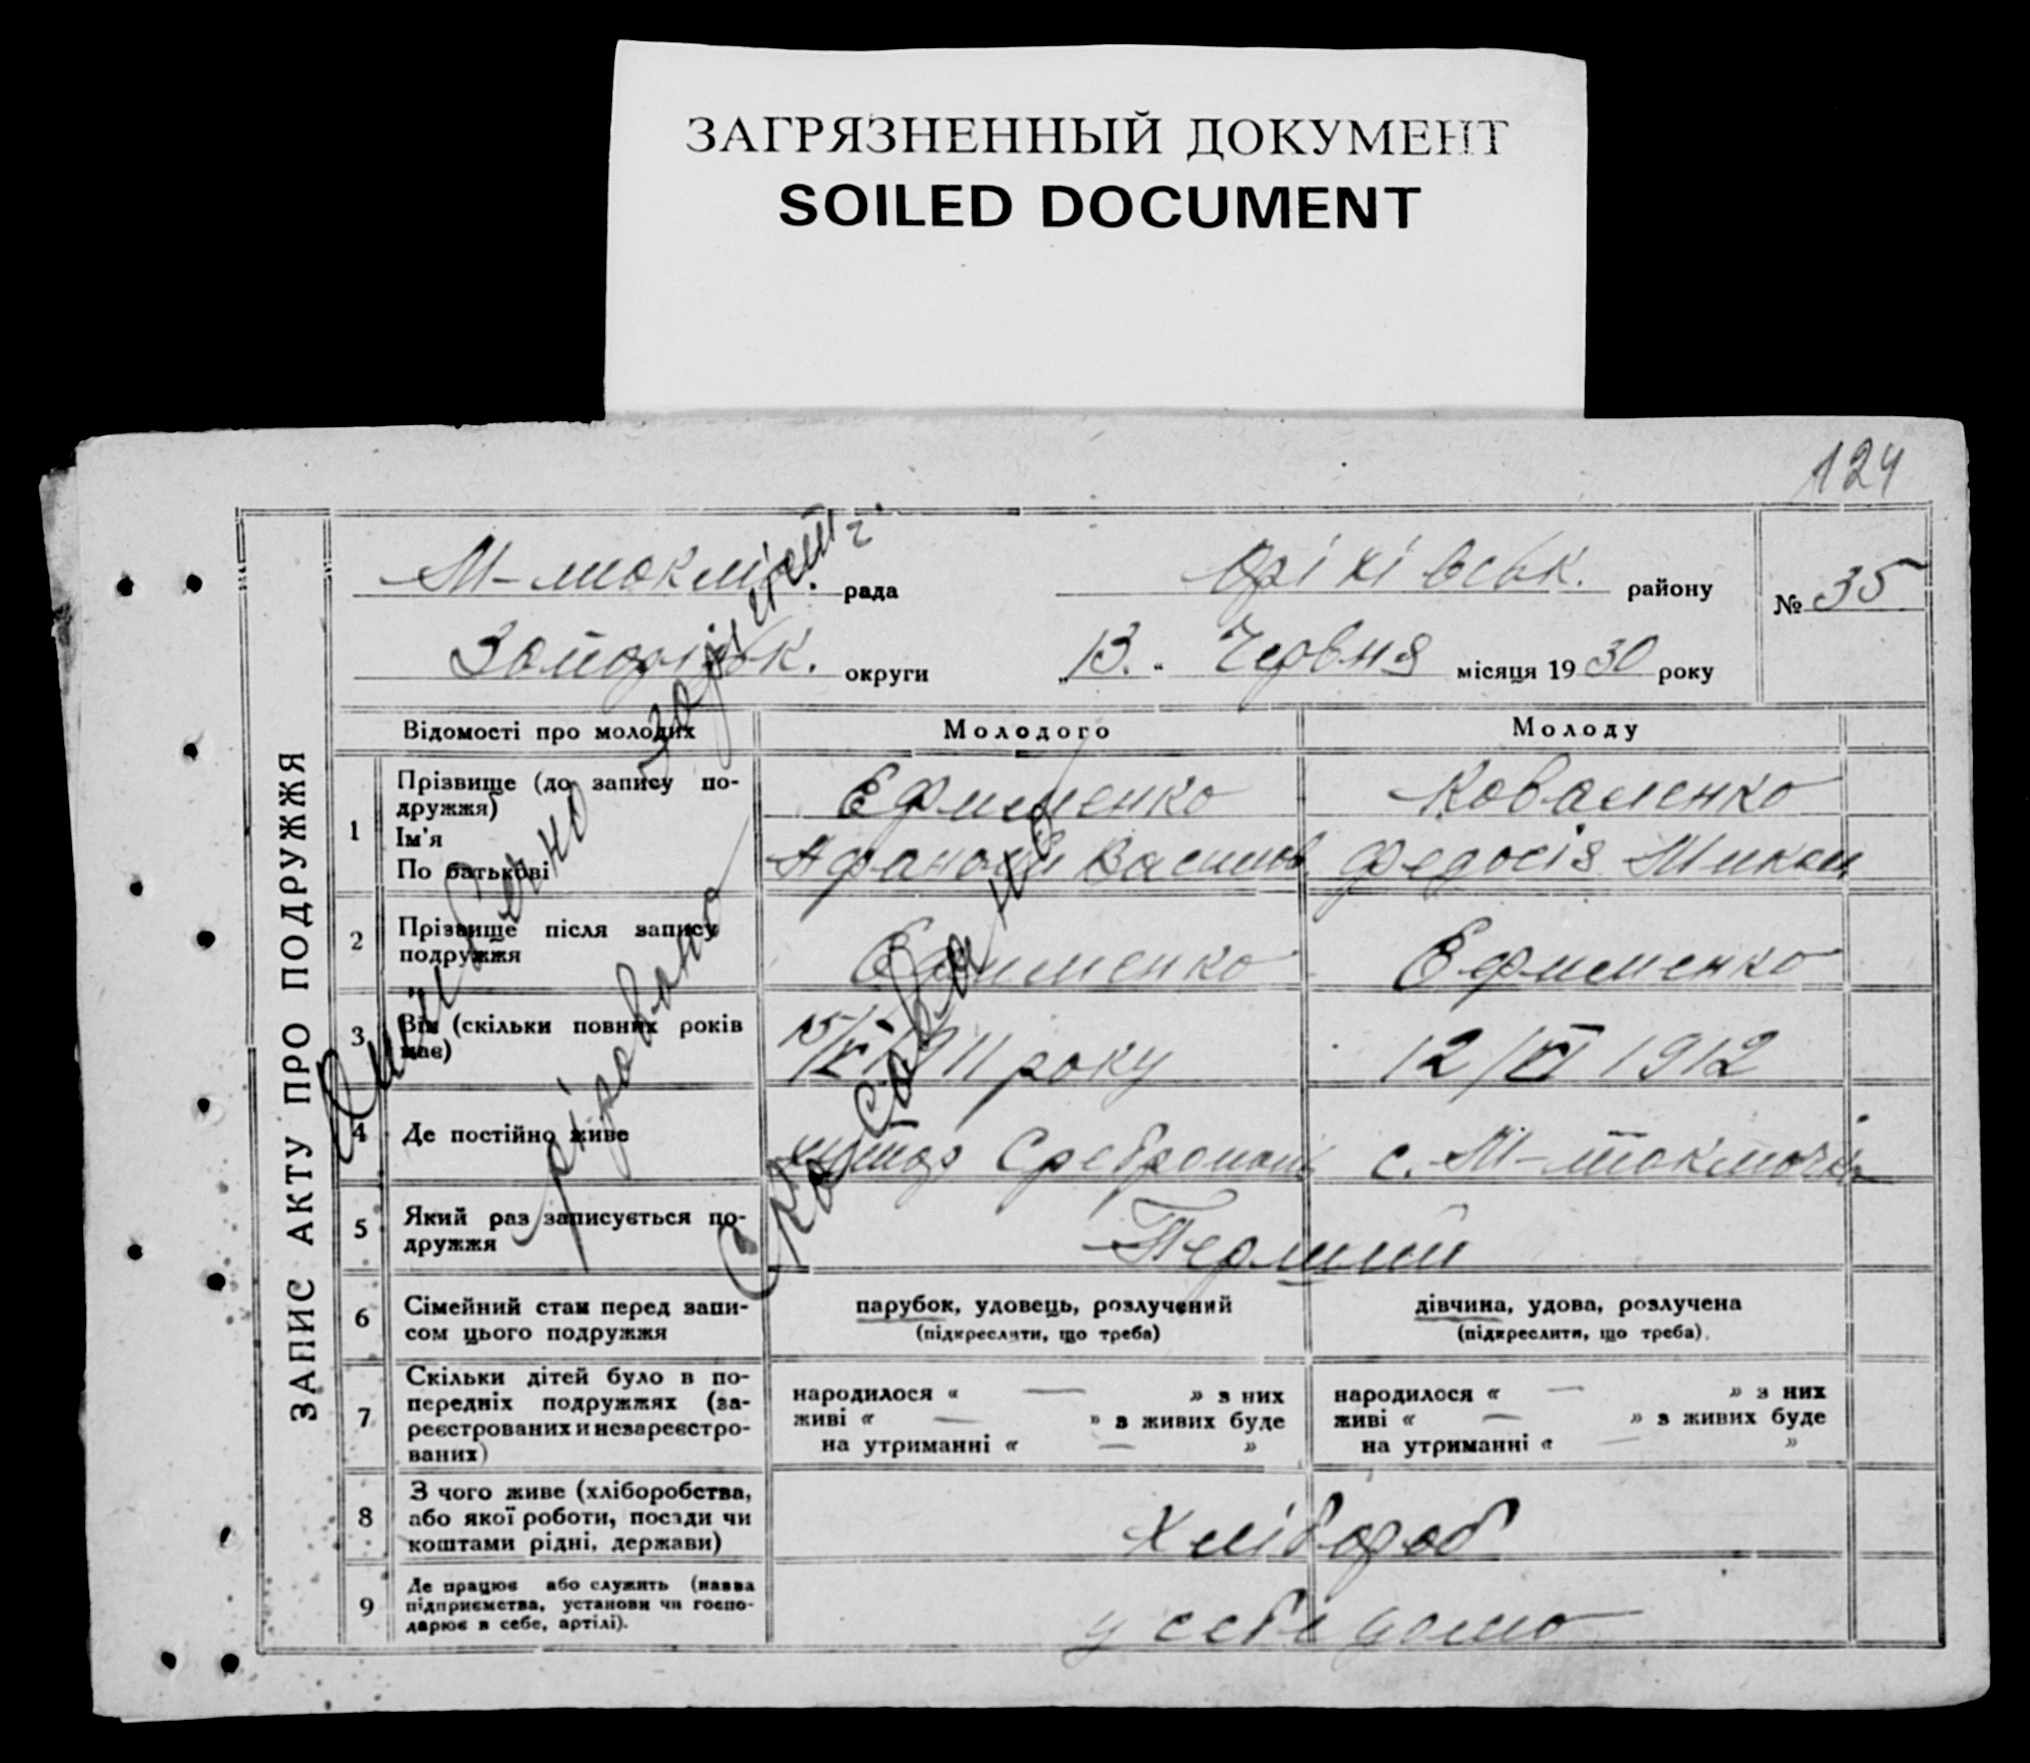 ЗАГРЯЗНЕННЫЙ ДОКУМЕНТ
SOILED DOCUMENT
124
ЗАПИС АКТУ ПРО ПОДРУЖЖЯ
М-токмач. рада Оріхівськ. району № 35
Запоріжськ. округи „13." Червня місяця 1930 року
Відомості про молодих Молодого Молоду
1 Прізвище (до запису по-
дружжя)
Ім'я
По батькові
Ефименко Коваленко
Афанасій Василів Федосія Микит
2 Прізвище після запису
подружжя
Ефименко Ефименко
3 Вік (скільки повних років
має)
15/ 1911 року 12/VI 1912
4 Де постійно живе
хутор с. М-токмачка
5 Який раз записується по-
дружжя
Перший
6 Сімейний стан перед запи-
сом цього подружжя
парубок, удовець, розлучений
(підкреслити, що треба)
дівчина, удова, розлучена
(підкреслити, що треба).
7 Скільки дітей було в по-
передніх подружжях (за-
реєстрованих и незареєстро-
ваних)
народилося « — » з них
живі « — » з живих буде
на утриманні « — »
народилося « — » з них
живі « — » з живих буде
на утриманні « — »
8 З чого живе (хліборобства,
або якої роботи, посади чи
коштами рідні, держави)
Хлібороб
9 Де працює або служить (назва
підприємства, установи чи госпо-
дарює в себе, артілі).
у себе дома
Скасовано